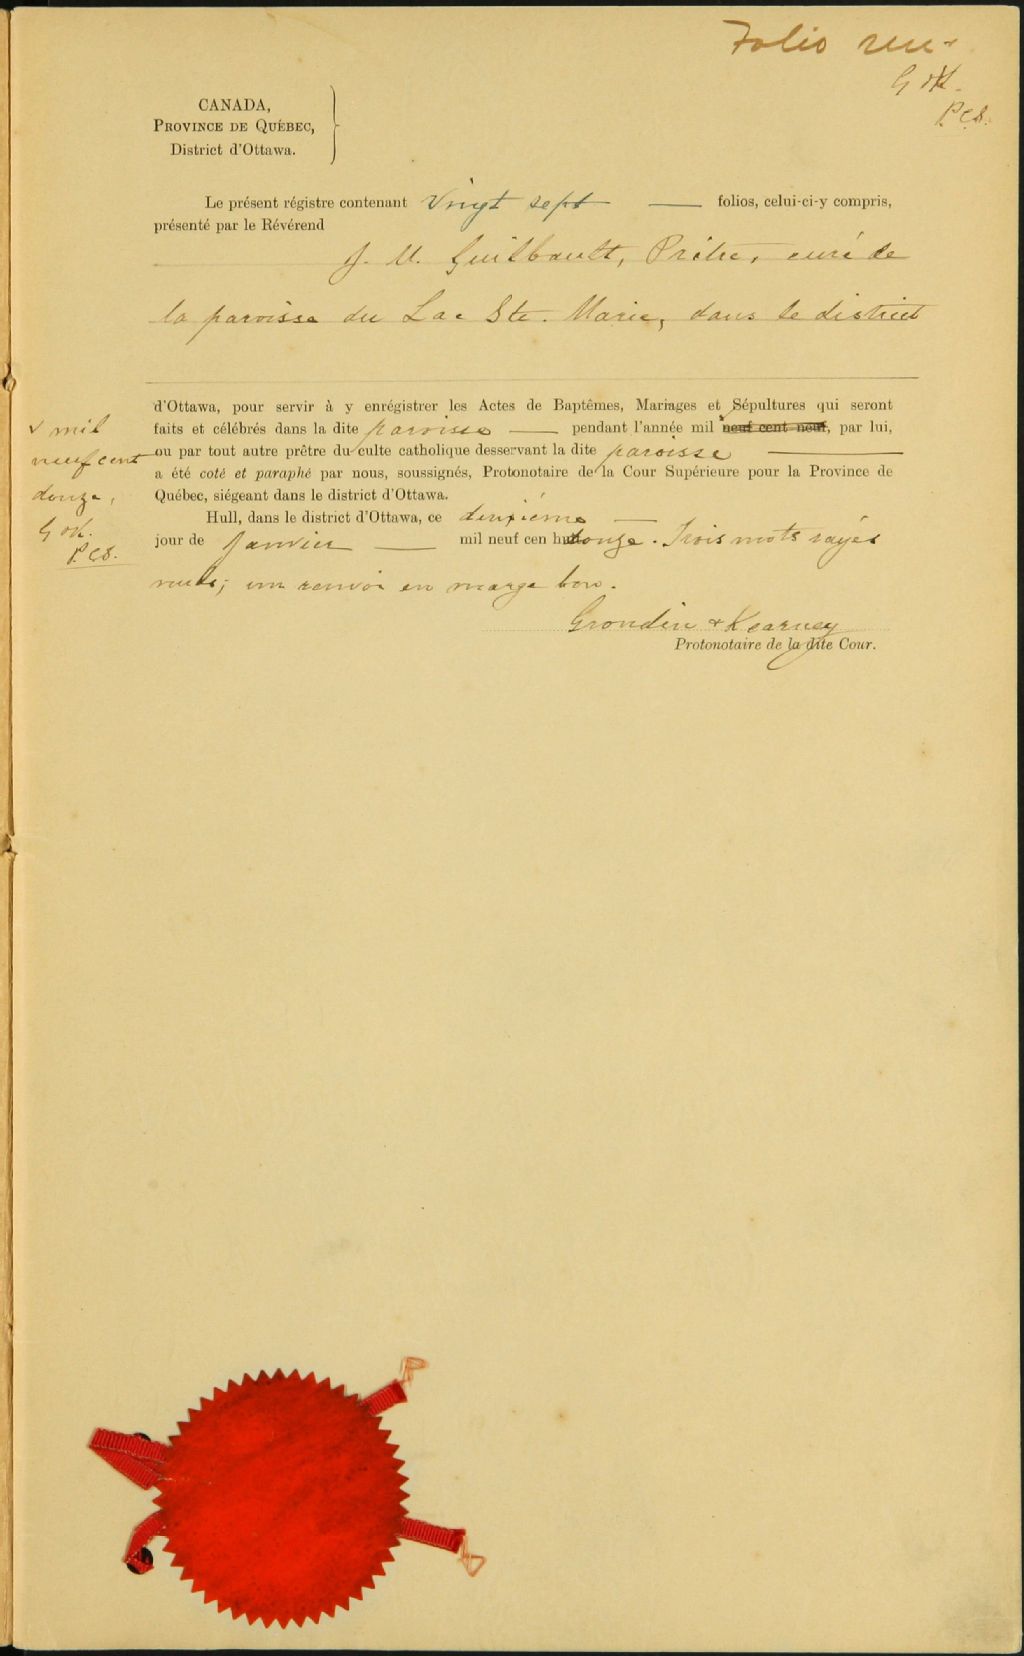 Folio un
G & K.
P.C.S.
CANADA,
PROVINCE DE QUÉBEC,
District d'Ottawa.
Le présent régistre contenant vingt sept folios, celui-ci-y compris,
présenté par le Révérend
J. U. Guilbault, Prêtre, curé de
la paroisse du Lac Ste. Marie, dans le district
d'Ottawa, pour servir à y enrégistrer les Actes de Baptêmes, Mariages et Sépultures qui seront
faits et célébrés dans la dite paroisse pendant l'année mil neuf cent neuf, par lui,
ou par tout autre prêtre du culte catholique desservant la dite paroisse
a été coté et paraphé par nous, soussignés, Protonotaire de la Cour Supérieure pour la Province de
Québec, siégeant dans le district d'Ottawa.
mil
neuf cent
douze,
G & K.
P.C.S.
Hull, dans le district d'Ottawa, ce deuxième
jour de Janvier mil neuf cen douze. Trois mots rayés
nuls; un renvoi en marge bon.
Grondin & Kearney
Protonotaire de la dite Cour.